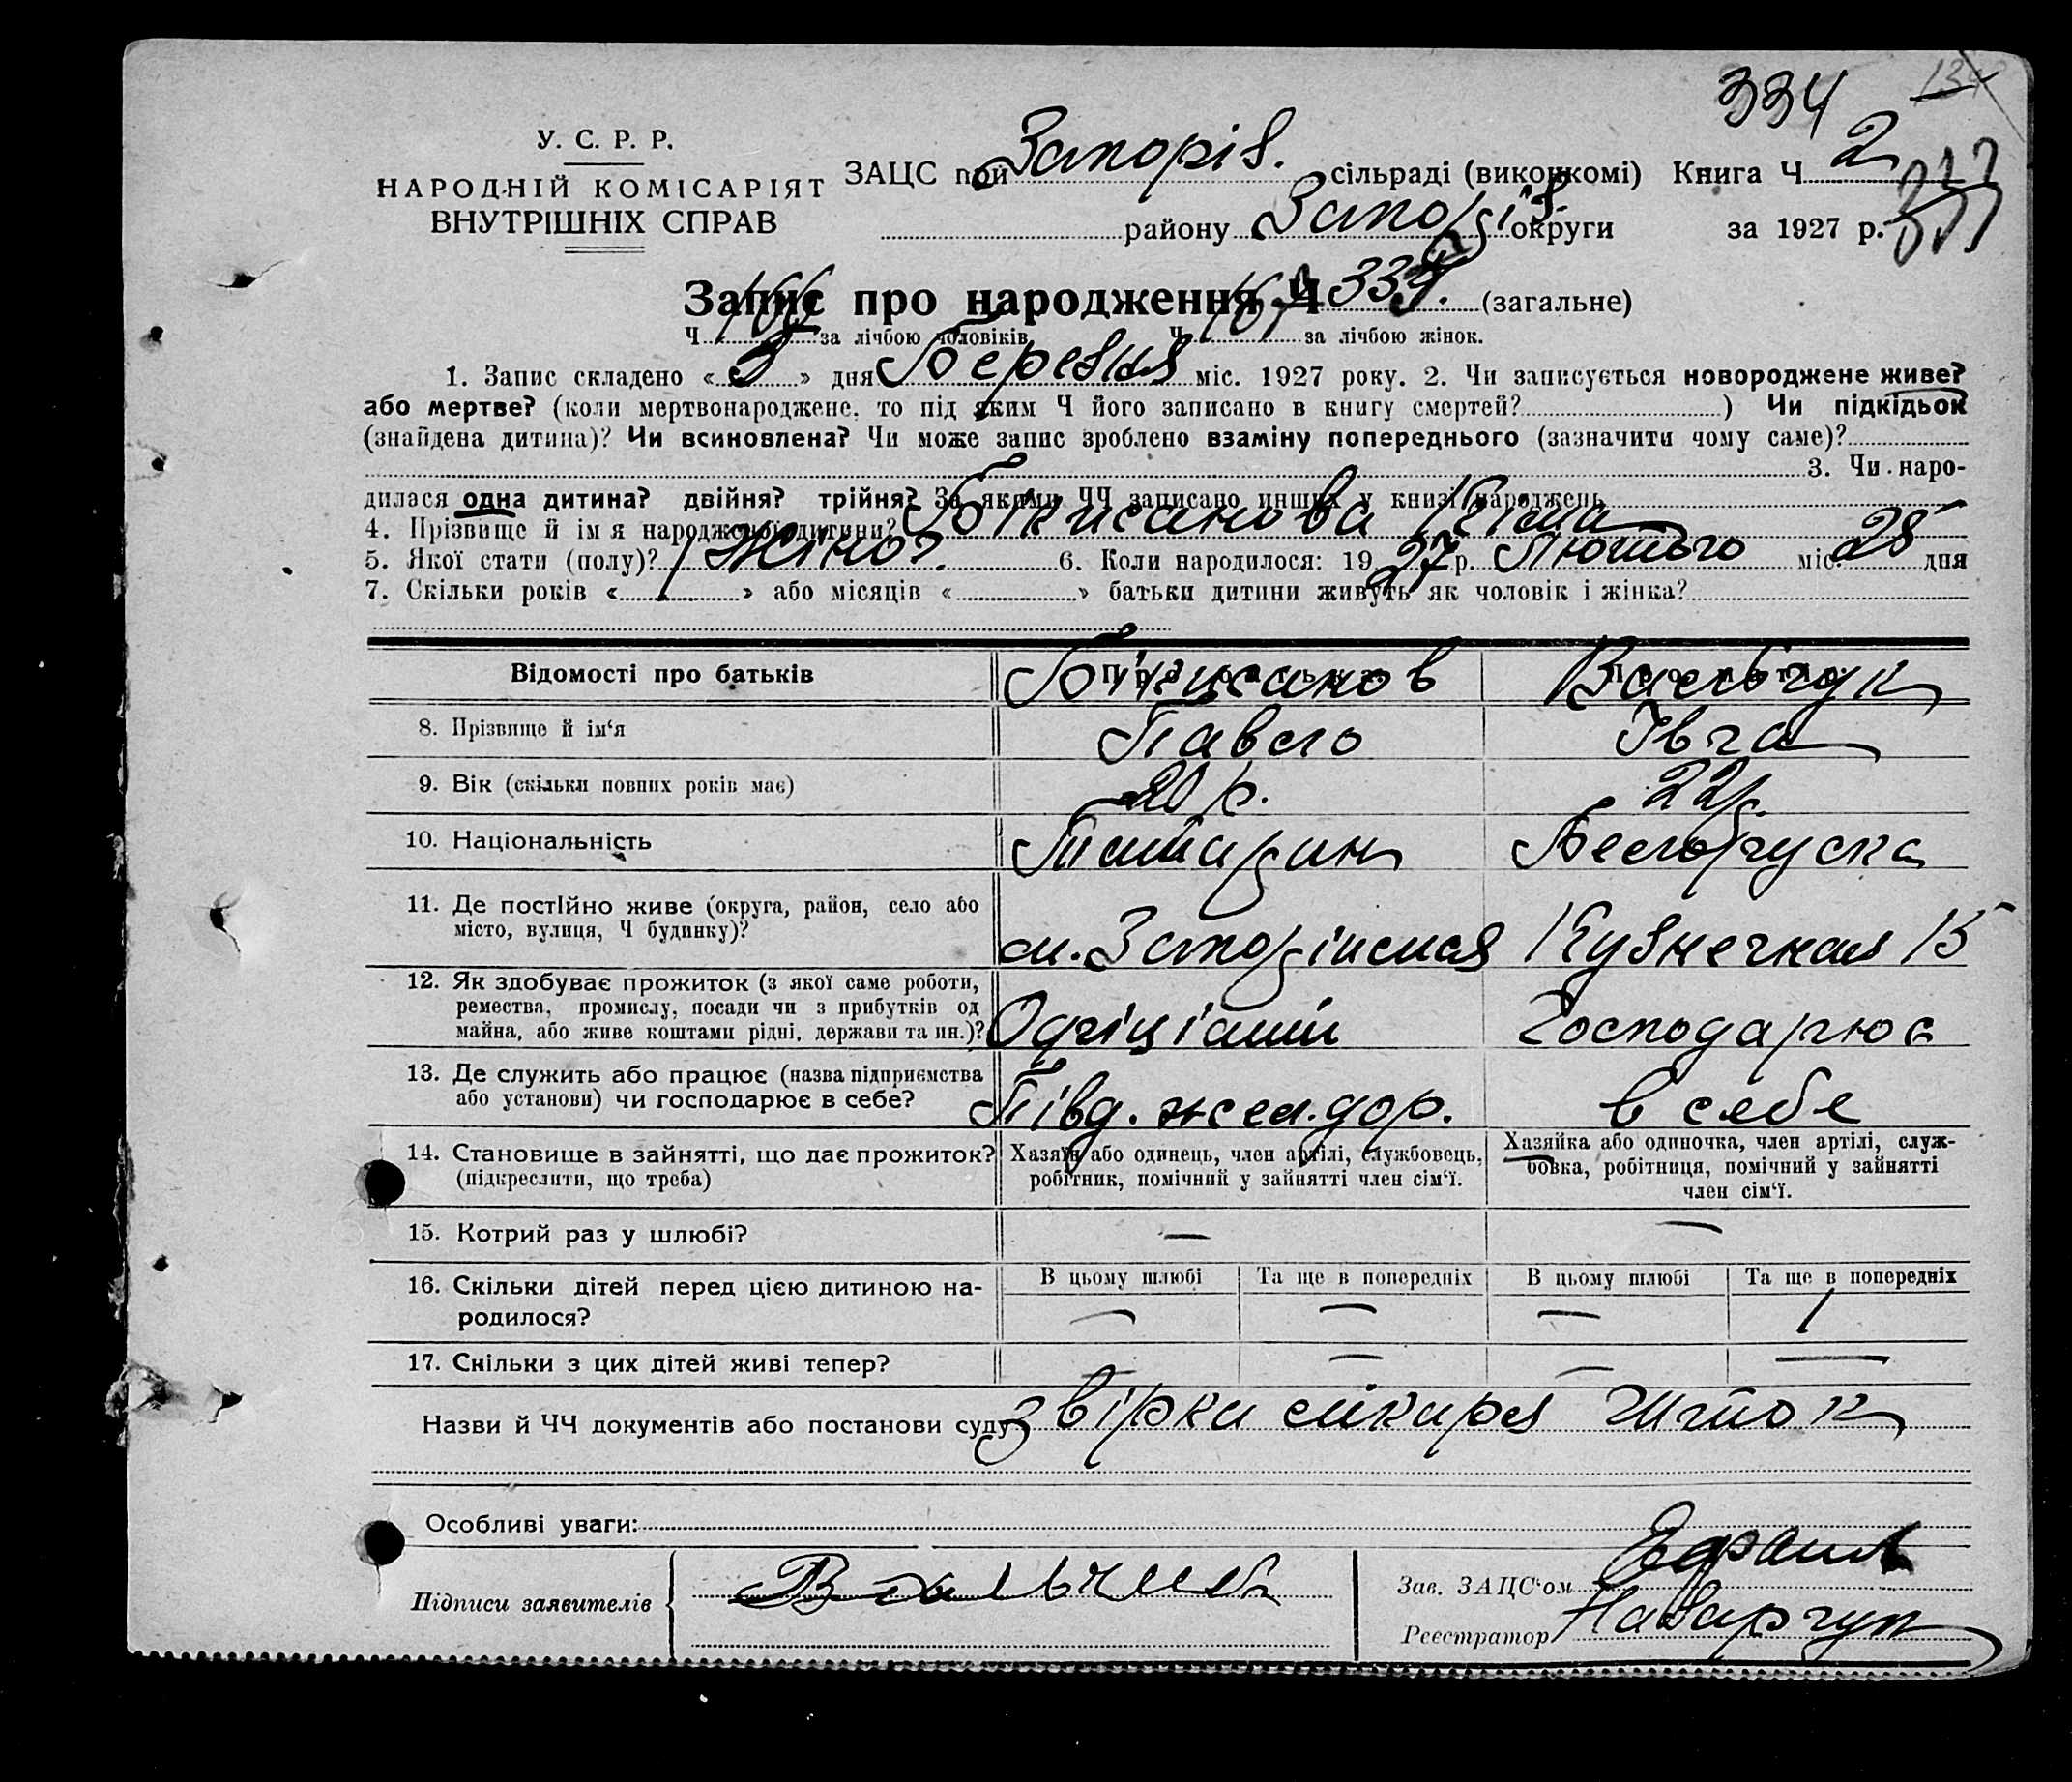 334
У. С. Р. Р.
НАРОДНІЙ КОМІСАРІЯТ
ВНУТРІШНІХ СПРАВ
ЗАЦС при Запоріз. сільраді (виконкомі) Книга Ч 2
району Запоріз. округи за 1927 р.
Запис про народження Ч 334. (загальне)
Ч 166 за лічбою чоловіків Ч 167 за лічбою жінок.
1. Запис складено « 3 » дня Березня міс. 1927 року. 2. Чи записується новороджене живе?
або мертве? (коли мертвонароджене, то під яким Ч його записано в книгу смертей? ) Чи підкідьок
(знайдена дитина)? Чи всиновлена? Чи може запис зроблено взаміну попереднього (зазначити чому саме)?
3. Чи наро-
дилася одна дитина? двійня? трійня? За якими ЧЧ записано инших у книзі народжень
4. Прізвище й ім я народженої дитини?
5. Якої стати (полу)? Жіно?. 6. Коли народилося: 1927 р. Лютого міс. 28 дня
7. Скільки років « » або місяців « » батьки дитини живуть як чоловік і жінка?
Відомості про батьків
8. Прізвище й ім‘я Павло
9. Вік (скільки повних років має) 20 р. 22 р.
10. Національність Татарин Белоруска
11. Де постійно живе (округа, район, село або
місто, вулиця, Ч будинку)? м. Запоріжжя Кузнечная 15
12. Як здобуває прожиток (з якої саме роботи,
ремества, промислу, посади чи з прибутків од
майна, або живе коштами рідні, держави та ин.)? Офіціант Господарює
13. Де служить або працює (назва підприємства
або установи) чи господарює в себе? Півд. жел. дор. в себе
14. Становище в зайнятті, що дає прожиток?
(підкреслити, що треба)
Хазяїн або одинець, член артілі, службовець,
робітник, помічний у зайнятті член сім‘ї.
Хазяйка або одиночка, член артілі, служ-
бовка, робітниця, помічний у зайнятті
член сім‘ї.
15. Котрий раз у шлюбі? — —
16. Скільки дітей перед цією дитиною на-
родилося?
В цьому шлюбі Та ще в попередніх В цьому шлюбі Та ще в попередніх
— — — 1
17. Скільки з цих дітей живі тепер? — — — —
Назви й ЧЧ документів або постанови суду звірка лікаря
Особливі уваги:
Підписи заявителів
Зав. ЗАЦС‘ом
Реєстратор Назарчук